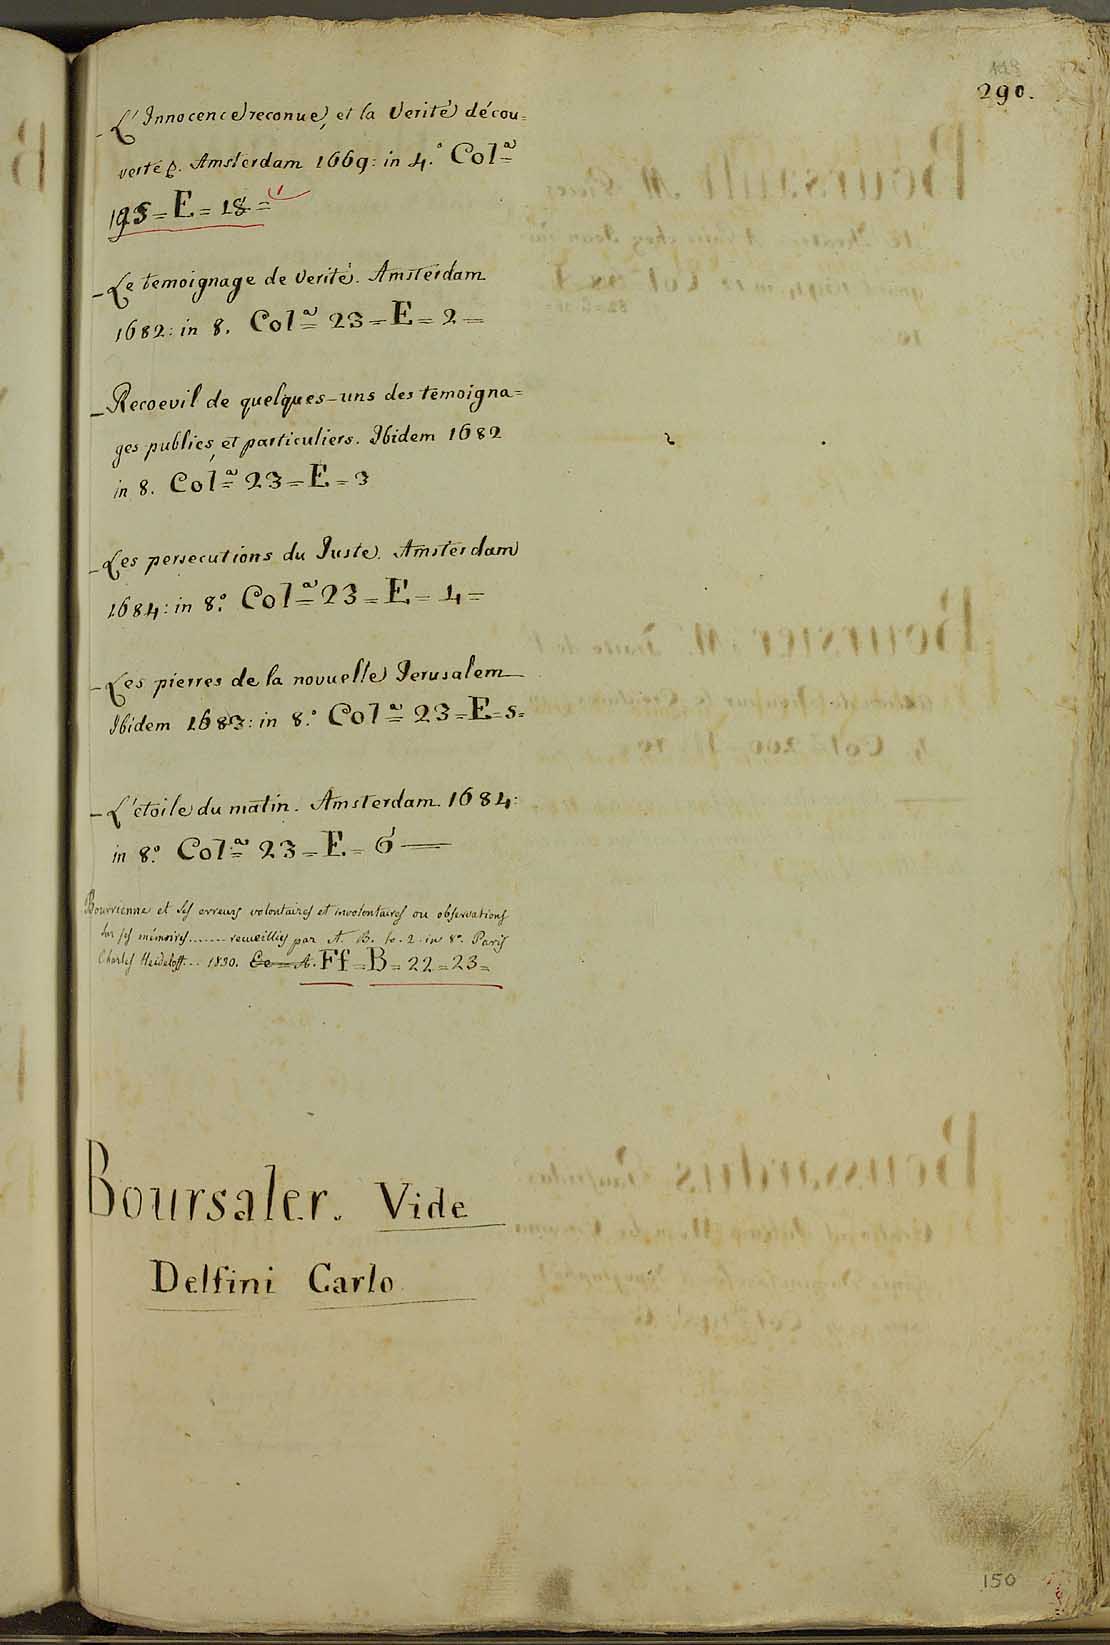 290.
- L'Innocence reconue, et la Verité décou=
verte p. Amsterdam 1669: in 4.° Col.ª
195 = E = 18 =
- Le temoignage de Verité. Amsterdam
1682: in 8. Col.ª 23 = E = 2 =
- Recoevil de quelques-uns des temoigna=
ges publics, et particuliers. Ibidem 1682
in 8. Col.ª 23 = E = 3
- Les persecutions du Juste. Amsterdam
1684: in 8.° Col.ª 23 = E = 4 =
- Les pierres de la novuelle Jerusalem
Ibidem 1683: in 8.° Col.ª 23 = E = 5 =
- L'étoile du matin. Amsterdam 1684:
in 8.° Col.ª 23 = E = 6 —
Bourrienne et ses erreurs volontaires et involontaires ou observations
sur ses mémoires....... recueillies par A. B. to. 2. in 8.° Paris
Charles Heideloff... 1830. Ff = B = 22 = 23 =
Boursaler. Vide
Delfini Carlo
150